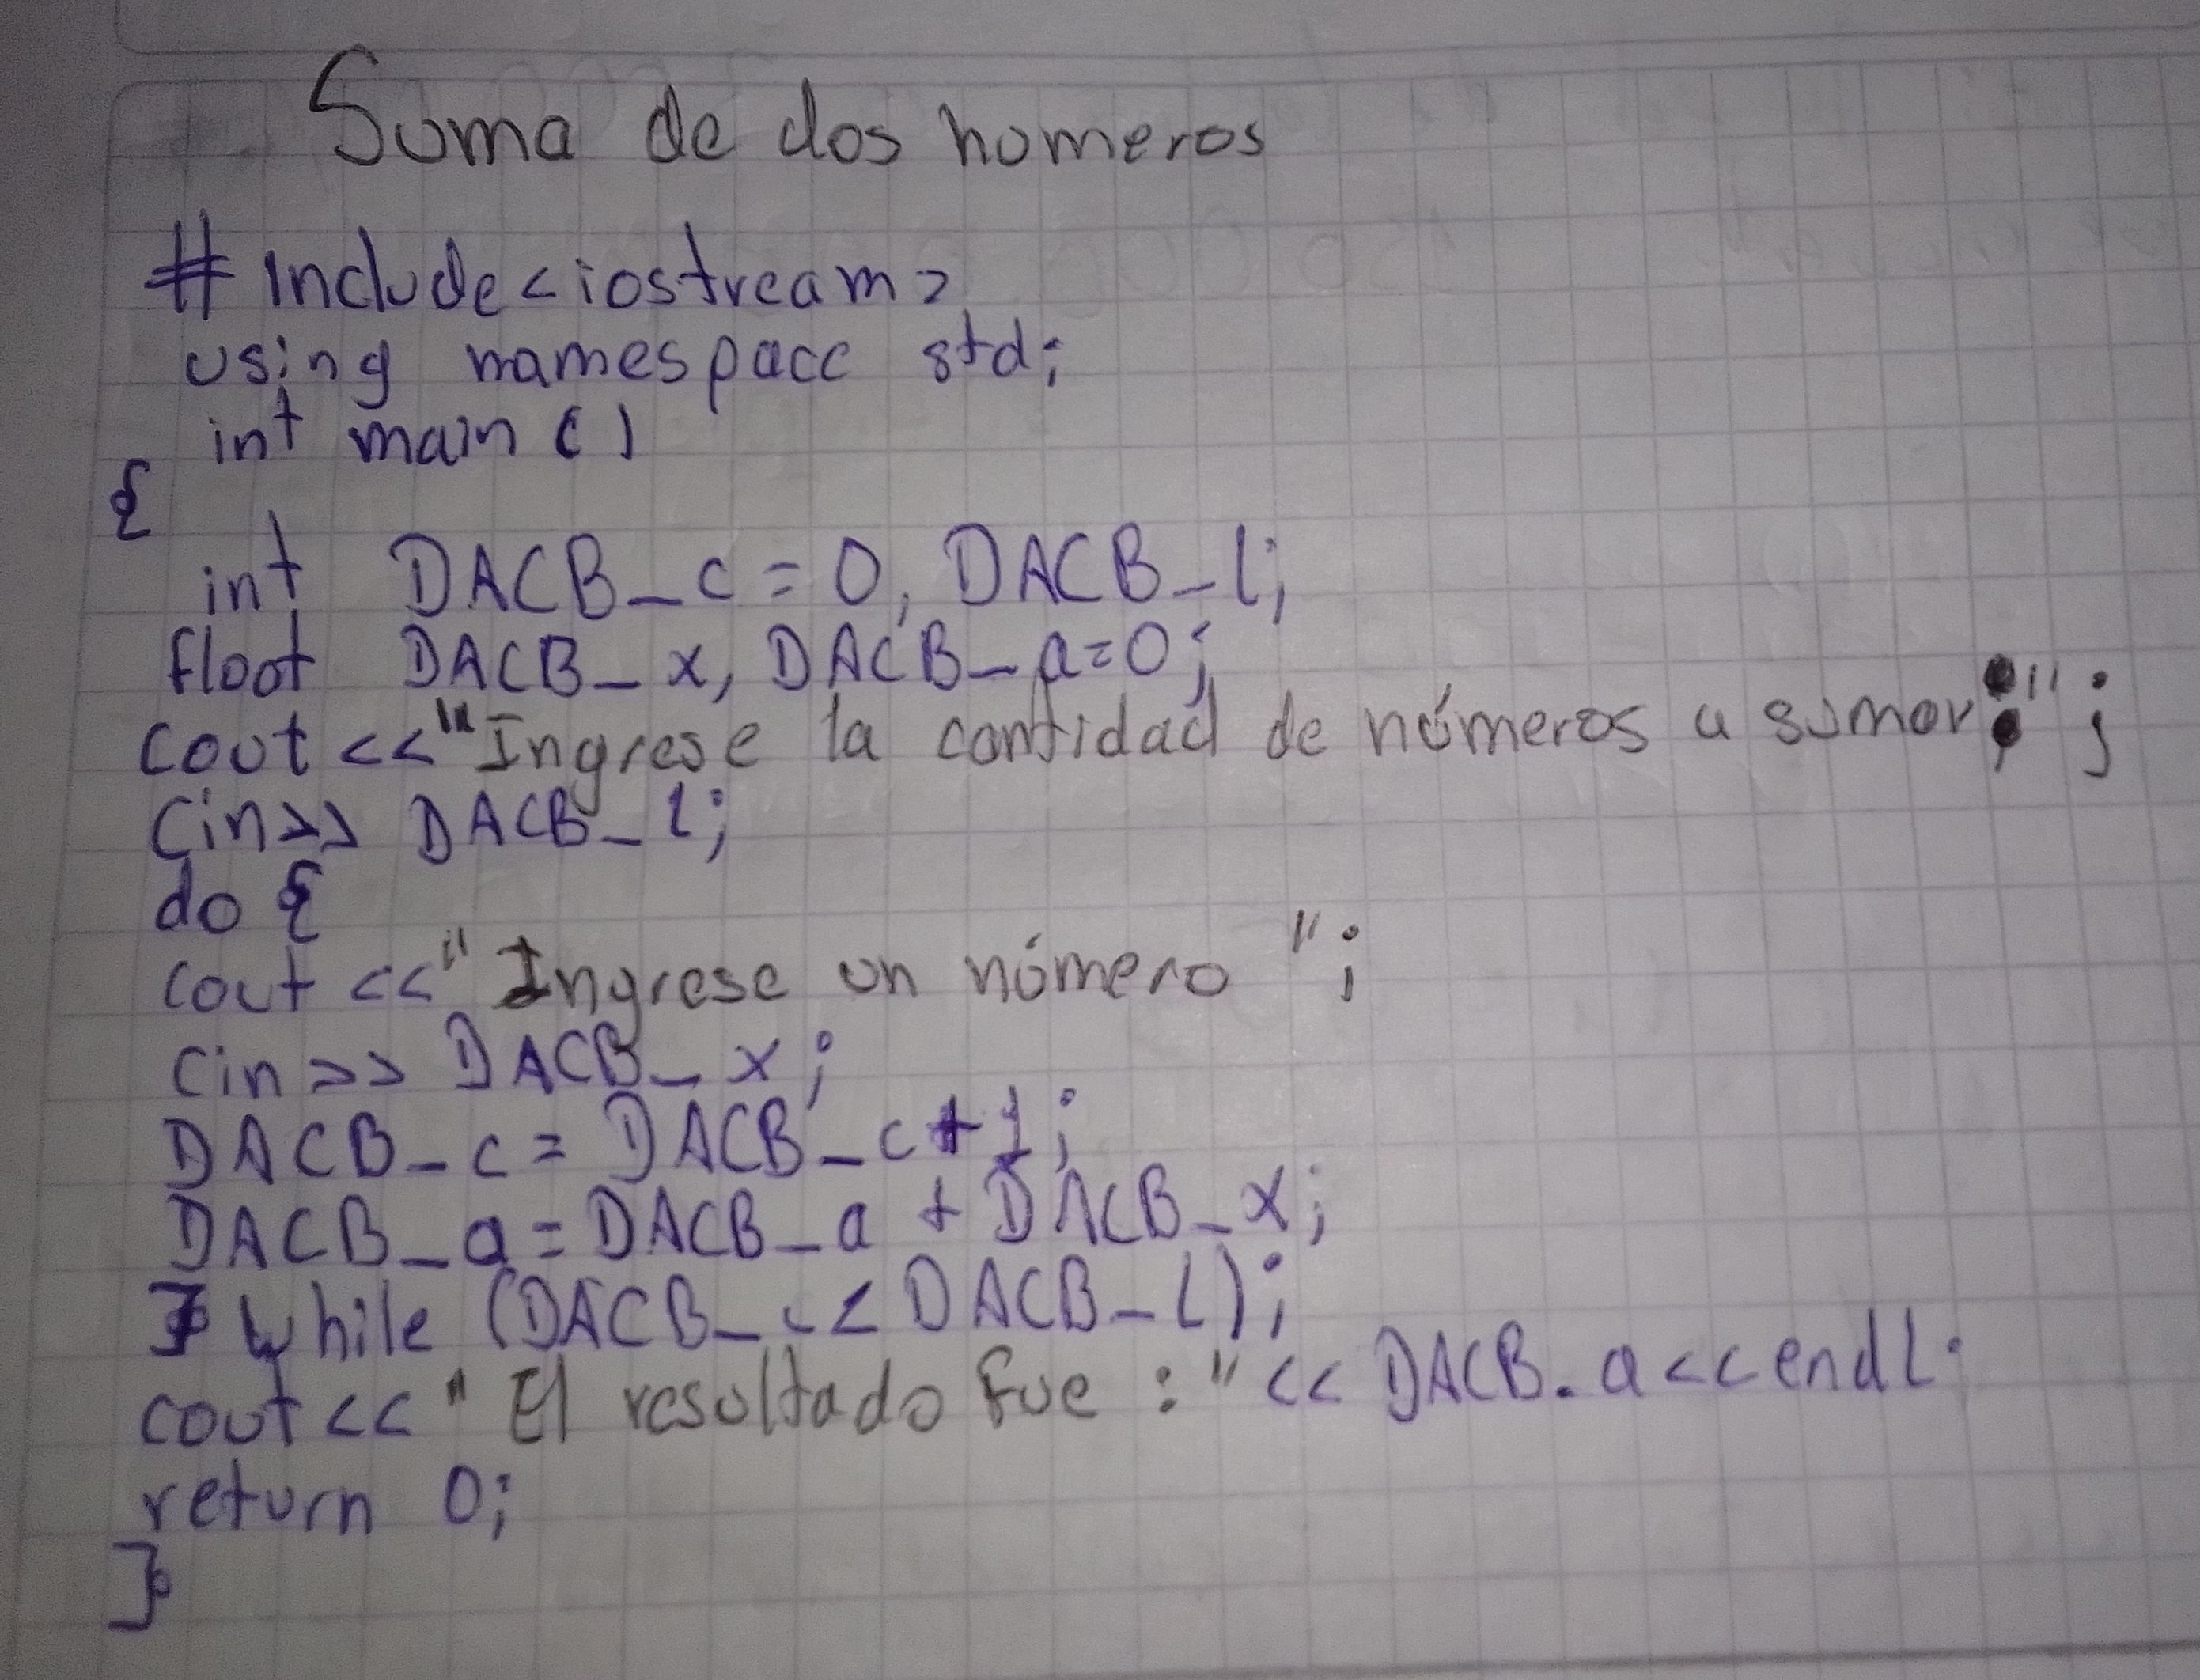 Suma de dos numeros
# Include<iostream>
using namespace std;
int main ()
{
int DACB_c = 0, DACB_l;
float DACB_x, DACB_a=0;
cout <<"Ingrese la cantidad de números a sumar:";
Cin>> DACB_l;
do {
cout <<"Ingrese un número ";
Cin>> DACB_x;
DACB_c = DACB_c+1;
DACB_a = DACB_a + DACB_x;
} while (DACB_c< DACB_l);
cout << "El resultado fue :"<< DACB_a <<endl.
return 0;
}